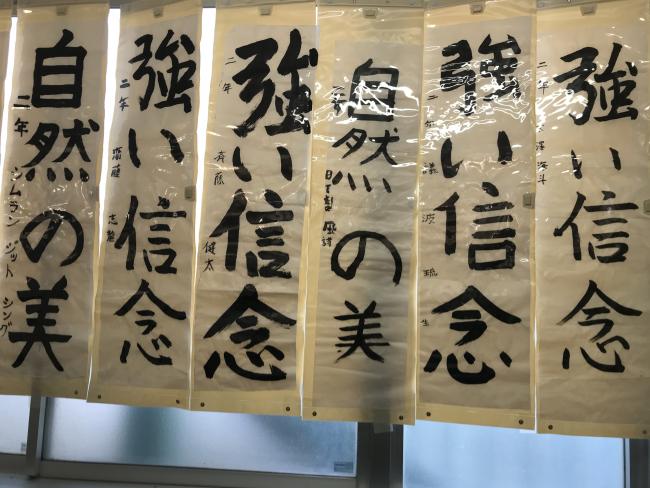 自然の美
二年 シムラン ジット シング
強い信念
二年 齋藤
強い信念
二年 斉藤 健太
自然の美
強い信念
強い信念
二年